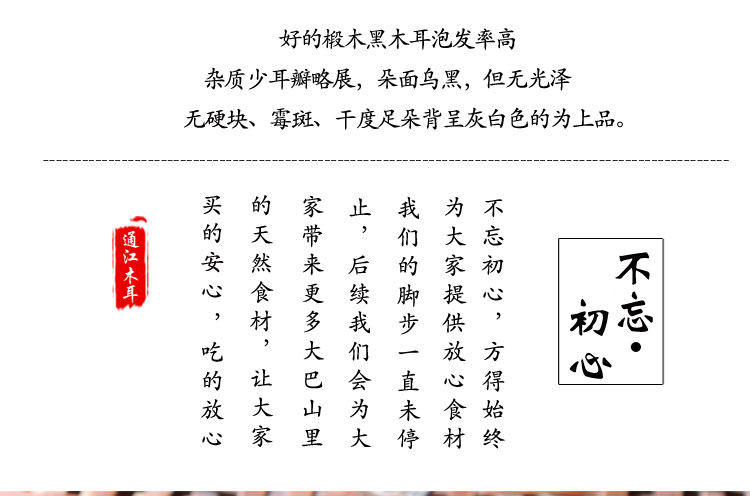 好的椴木黑木耳泡发率高
杂质少耳瓣略展，朵面乌黑，但无光泽
无硬块、霉斑、干度足朵背呈灰白色的为上品。
不忘·
初心
不忘初心，方得始终
为大家提供放心食材
我们的脚步一直未停
止，后续我们会为大
家带来更多大巴山里
的天然食材，让大家
买的安心，吃的放心
通江木耳